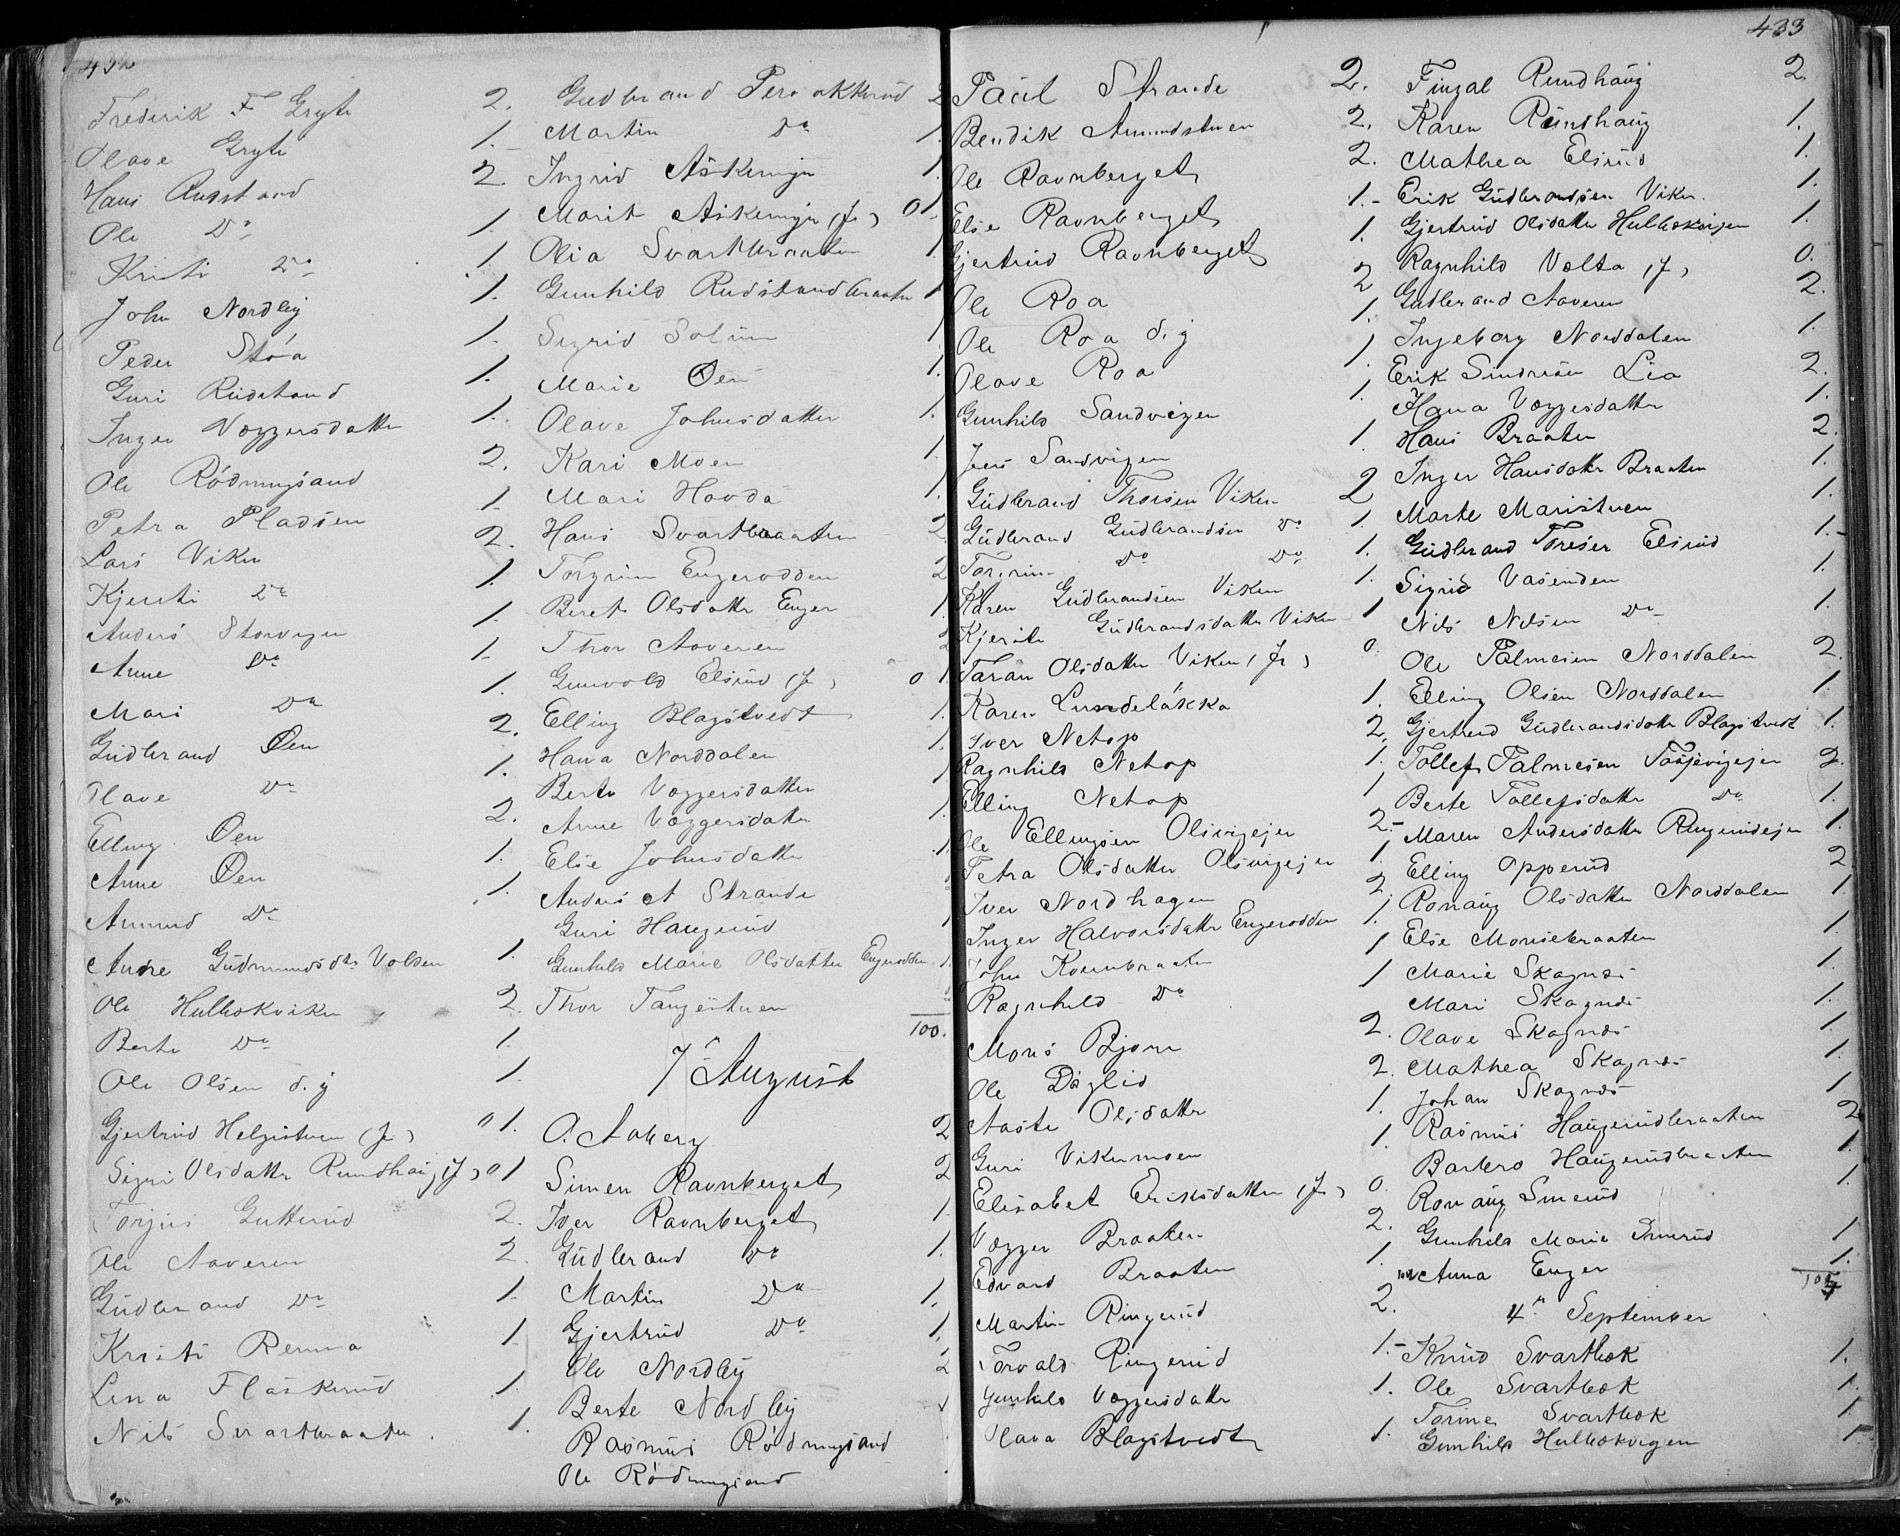 432
Frederik F Gryte 2.
Olave Gryte 1.
Hans Rustand 2.
Ole Do 1.
Kristi Do 1
John Nordby 1.
Peder Stóa 1.
Guri Rudstand 1.
Inger Væggersdatter 1.
Ole Rödningsand 2.
Petra Pladsen 1.
Lars Viker 2.
Kjersti Do 1.
Anders Storvigen 1.
Anne Do 1.
Mari Do 1.
Gudbrand Øen 2.
Olave Do 1.
Elling Øen 2.
Anne Øen 1.
Amund Do 1.
Andre Gudmundsdtr Volden 1.
Ole Hulbækviken 2.
Berte Do 1.
Ole Olsen d.y 1.
Gjertrud Helgestuen (J) 0 1.
Sigri Olsdatter Rundhaug (J) 0 1
Torjus Gutterud 2.
Ole Aaveren 2.
Gudbrand Do 1.
Kristi Renna 1.
Lina Flaskerud 1.
Nils Svartbraaten 1.
Gudbrand Persokkerud 2
Martin Do 1.
Ingrid Askeengn 1.
Marit Askeengn (J) 0 1.
Olia Svartbraaten 1
Gunhild Rudstandbraaten 1
Sigrid Solum 1
Marie Øen 1.
Olave Johnsdatter 1.
Kari Moen 1
Mari Hovda 1.
Hans Svartbraaten 2
Torgrim Engerodden 2
Beret Olsdatter Enger 1.
Thor Aaveren 2
Gunvold Elsrud (J) 0 1
Elling Blagstvedt 1.
Hana Norddalen 1.
Berte Væggersdatter 1
Anne Væggersdatter 1.
Else Johnsdatter 1.
Anders A Strande
Guri Haugerud 1
Gunhild Marie Olsdatter Engerodden 1.
Thor Tangestuen
100.
7de August
O. Aaberg 2
Simen Ravnberget 2
Iver Ravnberget 1
Gudbrand Do 1.
Martin Do 1.
Gjertrud Do 1.
Ole Nordby 2
Berte Nordby 1
Rasmus Rödningsand
Ole Rödningsand
433
Paul Strande 2.
Bendik Amundstuen 2.
Ole Ravnberget 2.
Else Ravnberget 1.
Gjertrud Ravnberget 1.
Ole Roa 2
Ole Roa d.y 1.
Olave Roa 1
Gunhild Sandvigen 1.
Jens Sandvigen 1.
Gudbrand Thorsen Viken 2
Gudbrand Gudbrandsen Do 1.
Torgrim Do Do 1.
Karen Gudbrandsen Viken 1.
Kjersti Gudbrandsdatter Viken 1
Taran Olsdatter Viken (J) 0
Karen Lundeløkka 1.
Iver Netop 2.
Ragnhild Netop 1.
Elling Netop 1
Ole Ellingsen Olsvigejer 2.
Petra Olsdatter Olsvigejer 1
Iver Nordhagen 2.
Inger Halvorsdatter Engerodden 1.
John Kvernbraaten 1
Ragnhild Do 1
Mons Bjøre 2.
Ole Døglid 2.
Aaste Olsdatter 1.
Guri Vikermoen 1.
Elisabet Eriksdatter (J) 0.
Vægger Braaten 2.
Edvard Braaten 1.
Martin Ringerud 2.
Torvald Ringerud 1.
Gunhild Væggersdatter 1.
Olava Blagstvedt 1.
Fingal Rundhaug 2.
Karen Rundhaug 1.
Mathea Elsrud 1.
Erik Gudbrandsen Viker 1.
Gjertrud Olsdatter Hulbækvigen 1.
Ragnhild Vælta (J) 0.
Gudbrand Aaveren 2.
Ingeborg Norddalen 1.
Erik Sindresen Lia 2.
Hana Væggersdatter 1.
Hans Braaten 2.
Inger Hansdatter Braaten 1.
Marte Maristuen 1.
Gudbrand Toresen Elsrud 1.
Sigrid Vasenden 1.
Nils Nilsen Do 1.
Ole Palmesen Norddalen 2.
Elling Olsen Norddalen 1
Gjertrud Gudbrandsdatter Blagstvedt 1.
Tollef Palmesen Tosjevigejer 2.
Berte Tollefsdatter Do 1.
Maren Andersdatter Ringerudejer 1.
Elling Opperud 2.
Ronaug Olsdatter Norddalen 1.
Else Monsebraaten 1
Marie Skagnæs 1.
Mari Skagnæs 1.
Olave Skagnæs 1
Mathea Skagnæs 1.
Johan Skagnæs 1
Rasmus Haugerudbraaten 2
Barbro Haugerudbraaten 1.
Ronaug Smerud 1.
Gunhild Marie Smerud 1
Anna Enger 1.
4de September
Knud Svartbæk 1.
Ole Svartbæk 1.
Torine Svartbæk 1
Gunhild Hulbækvigen 1